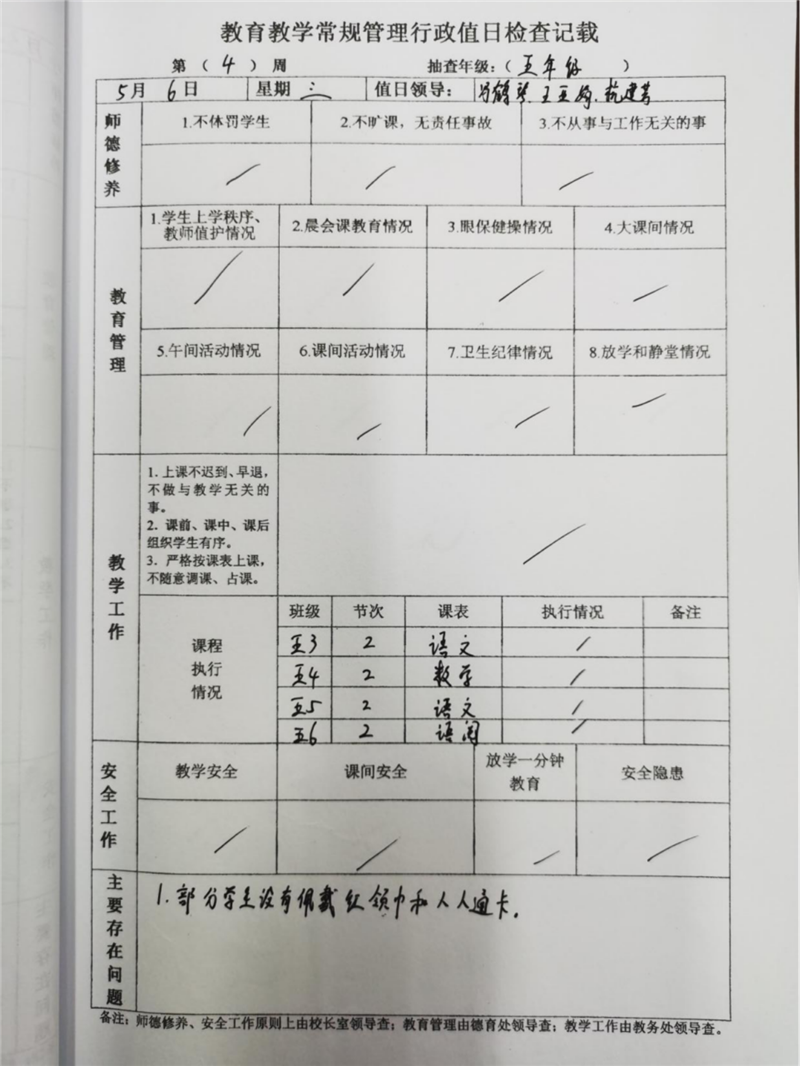 教育教学常规管理行政值日检查记载
第（4）周 抽查年级：（五年级）
5月6日 星期三 值日领导： 王亚 杭建芳
师德修养
1.不体罚学生 2.不旷课，无责任事故 3.不从事与工作无关的事
/ / /
教育管理
1.学生上学秩序、教师值护情况 2.晨会课教育情况 3.眼保健操情况 4.大课间情况
/ / / /
5.午间活动情况 6.课间活动情况 7.卫生纪律情况 8.放学和静堂情况
/ / / /
教学工作
1. 上课不迟到、早退，
不做与教学无关的
事。
2. 课前、课中、课后
组织学生有序。
3. 严格按课表上课，
不随意调课、占课。
/
课程
执行
情况
班级 节次 课表 执行情况 备注
五3 2 语文 /
五4 2 数学 /
五5 2 语文 /
五6 2 语阅 /
安全工作
教学安全 课间安全 放学一分钟教育 安全隐患
/ / / /
主要存在问题
1.部分学生没有佩戴红领巾和人人通卡.
备注：师德修养、安全工作原则上由校长室领导查；教育管理由德育处领导查；教学工作由教务处领导查。